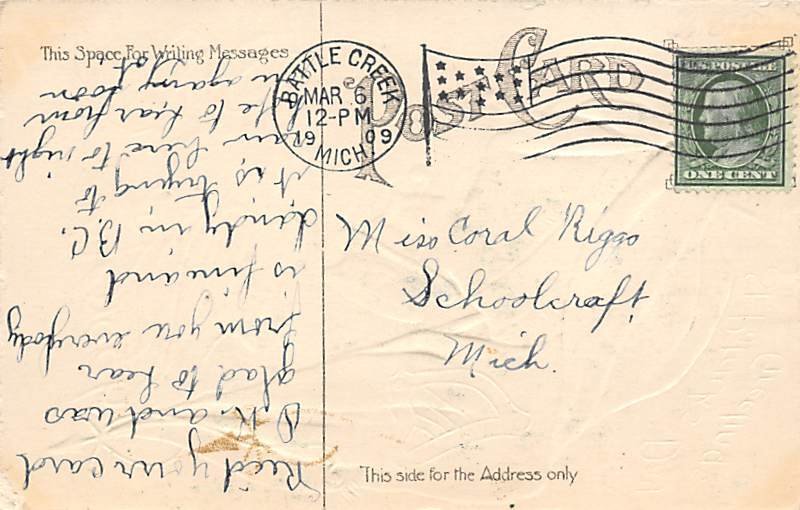 This Space For Writing Messages
POST CARD
BATTLE CREEK
MAR 6
12-PM
1909
MICH.
U.S. POSTAGE
ONE CENT
Rec'd your card
O.K. and was
glad to hear
from you everybody
is fine and
dandy in B.C.
it is trying to
rain here to night
like to hear from
soon
Miss Coral Riggs
Schoolcraft
Mich.
This side for the Address only